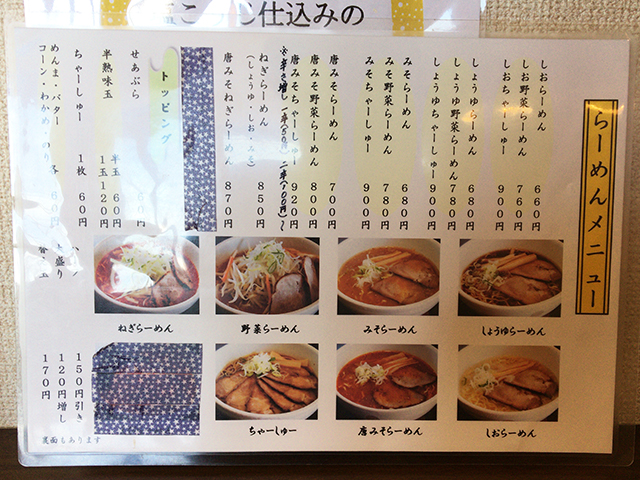 塩こうじ仕込みの
らーめんメニュー
しおらーめん 660円
しお野菜らーめん 760円
しおちゃーしゅー 900円
しょうゆらーめん 680円
しょうゆ野菜らーめん 780円
しょうゆちゃーしゅー 900円
みそらーめん 680円
みそ野菜らーめん 780円
みそちゃーしゅー 900円
唐みそらーめん 700円
唐みそ野菜らーめん 800円
唐みそちゃーしゅー 920円
※辛さ増し 一辛(50円) 二辛(100円)~
ねぎらーめん 850円
(しょうゆ・しお・みそ)
唐みそねぎらーめん 870円
トッピング
せあぶら
半熟味玉 半玉 60円
1玉 120円
ちゃーしゅー 1枚 60円
めんま・バター
コーン・わかめ・のり 各 60円
150円引き
大盛り 120円増し
替え玉 170円
ねぎらーめん
野菜らーめん
みそらーめん
しょうゆらーめん
ちゃーしゅー
唐みそらーめん
しおらーめん
裏面もあります